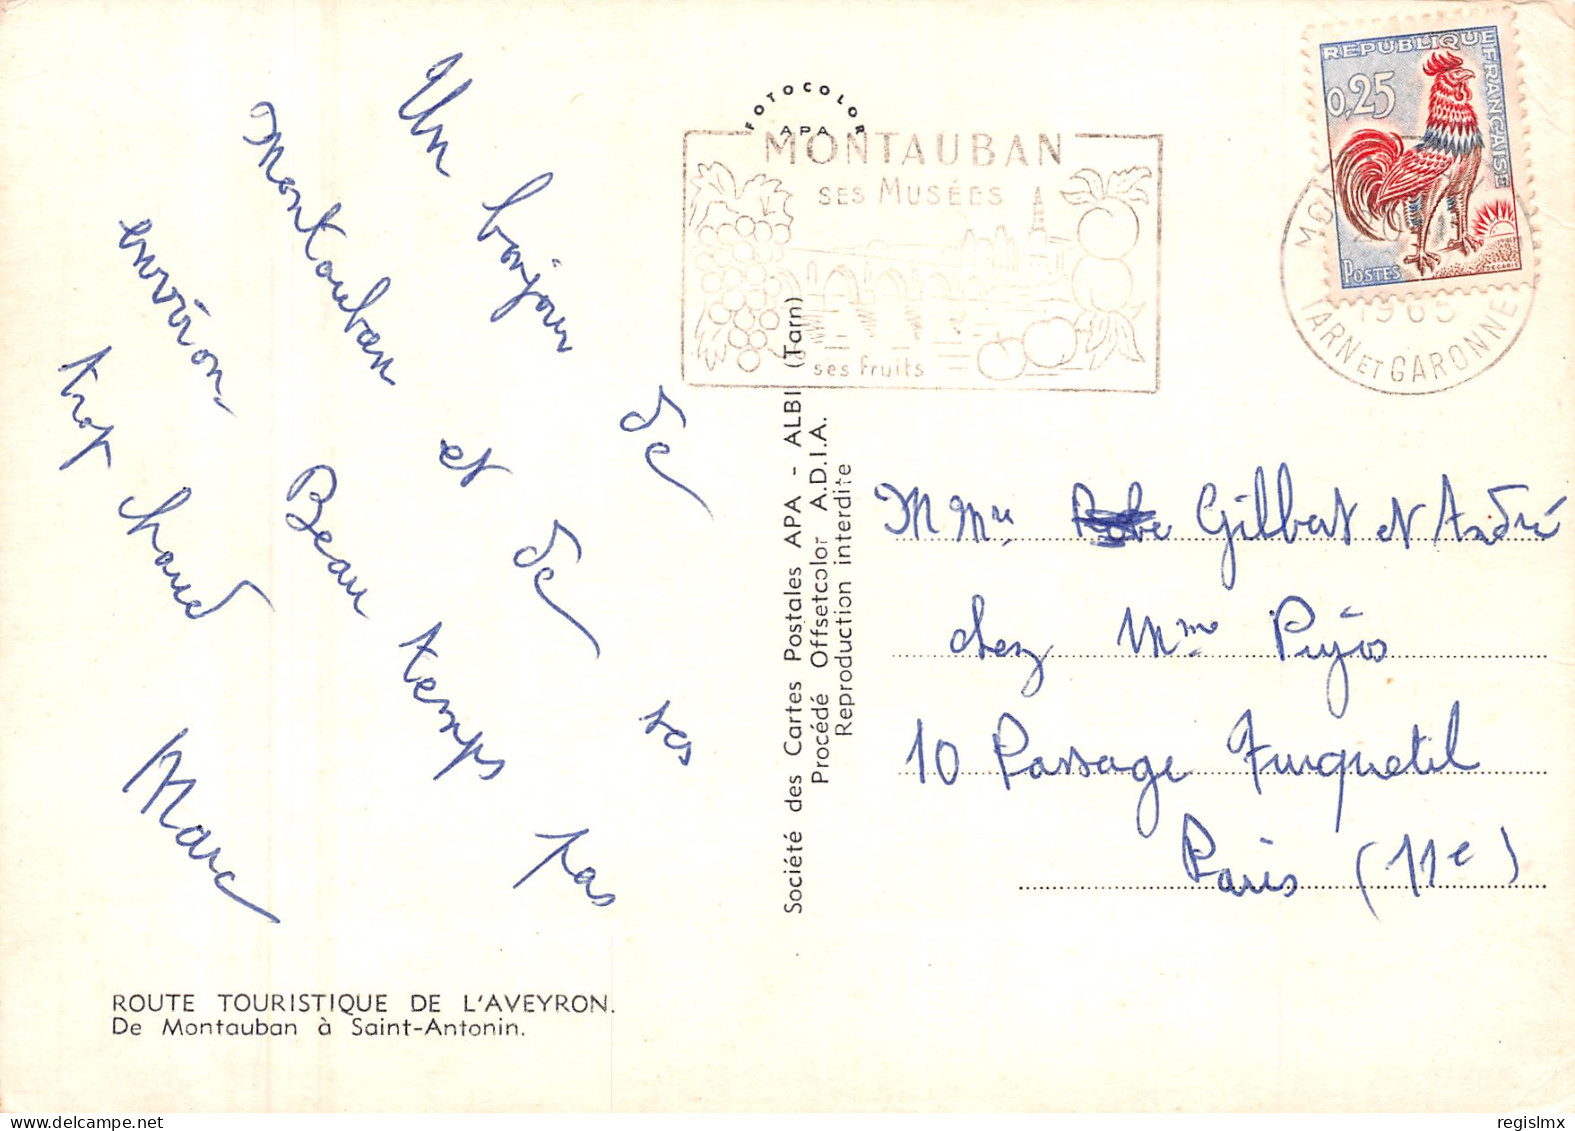 Un bonjour de
Montauban et de ses
environ. Beau temps pas
trop chaud
Marc
ROUTE TOURISTIQUE DE L'AVEYRON.
De Montauban à Saint-Antonin.
FOTOCOLOR
APA
MONTAUBAN
SES MUSÉES
ses fruits
Société des Cartes Postales APA - ALBI (Tarn)
Procédé Offsetcolor A.D.I.A.
Reproduction interdite
REPUBLIQUE FRANÇAISE
0,25
POSTES
DECARIS
1965
TARN ET GARONNE
M Mme Gilbert et André
chez Mme Pujos
10 Passage Turquetil
Paris (11e)
regislmx